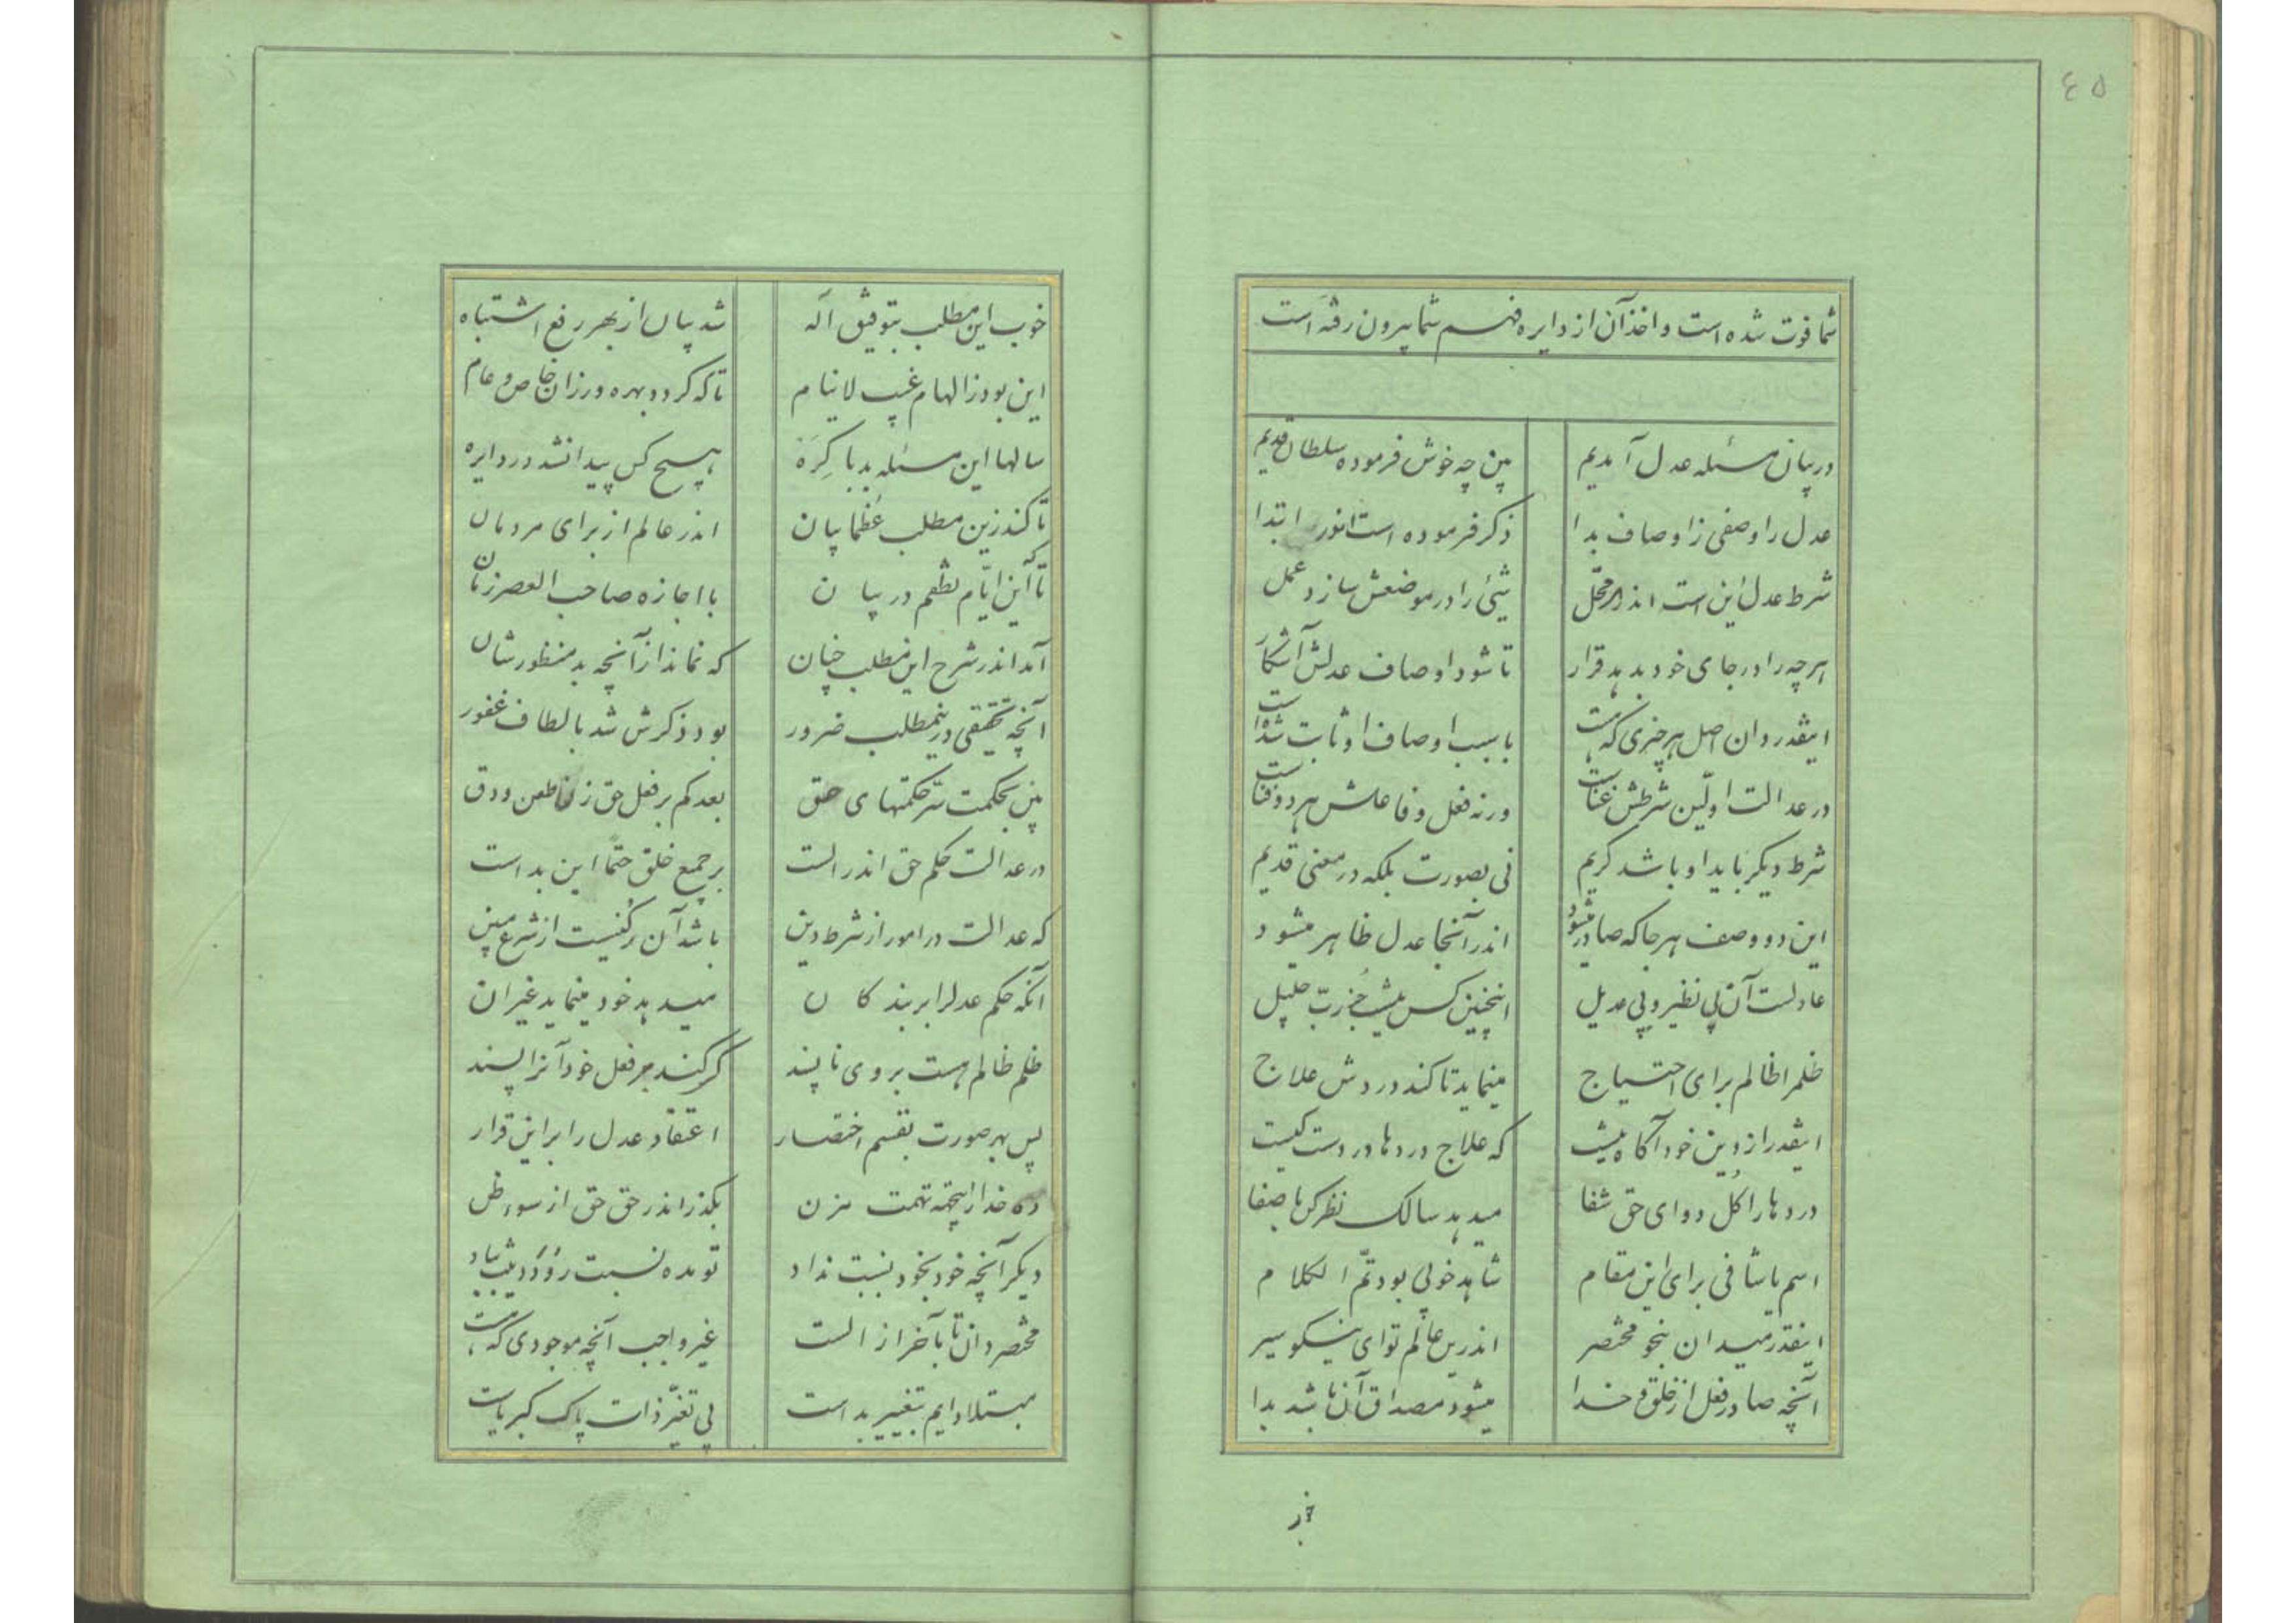 ٤٥
شما فوت شده است و اخذ آن از دایره فهم شما بیرون رفته است
در بیان مسئله عدل آمدیم بین چه خوش فرموده سلطان قدیم
عدل را وصفی ز اوصاف بدا ذکر فرموده است انور ابتدا
شرط عدل این است اندر هر محل شیئ را در موضعش سازد عمل
هرچه را در جای خود بدهد قرار تا شود اوصاف عدلش آشکار
اینقدر دان اصل هر چیزی که هست با سبب اوصاف او ثابت شده است
در عدالت اولین شرطش غناست ورنه فعل و فاعلش هر دو فناست
شرط دیکر باید او باشد کریم نی بصورت بلکه در معنی قدیم
این دو وصف هر جا که صادر میشود اندر آنجا عدل ظاهر میشود
عادلست آن بی نظیر و بی عدیل اینچنین کس نیست جز ربّ جلیل
ظلم را ظالم برای احتیاج مینماید تا کند دردش علاج
اینقدر از دین خود آکاه نیست که علاج دردها در دست کیست
دردها را کل دوای حق شفا میدهد سالک نظر کن با صفا
اسم یا شافی برای این مقام شاهد خوبی بود تمّ الکلام
اینقدر میدان بنحو مختصر اندرین عالم تو ای نیکو سیر
آنچه صادر فعل از خلق خدا میشود مصداق آن باشد بدا
خوب این مطلب بتوفیق آله شد بیان از بهر رفع اشتباه
این بود ز الهام غیب لاینام تا که کردد بهره ور زان خاص و عام
سالها این مسئله بد باکره هیچ کس پیدا نشد در دایره
تا کند زین مطلب عظما بیان اندر عالم از برای مردمان
تا که این ایّام نطقم در بیان با اجازه صاحب العصر زمان
آمد اندر شرح این مطلب چنان که نماند از آنچه بد منظورشان
آنچه تحقیقی درینمطلب ضرور بود ذکرش شد بالطاف غفور
بین بحکمت سرّ حکمتهای حق بعد کم بر فعل حق زن طعن و دق
در عدالت حکم حق اندر الست بر جمیع خلق حتماً این بد است
که عدالت در امور از شرط دین باشد آن رکنیست از شرع مبین
آنکه حکم عدل را بر بندکان میدهد خود مینماید غیر ان
ظلم ظالم هست بر وی ناپسند کر کند بر فعل خود آنرا پسند
پس بهر صورت بقسم اختصار اعتقاد عدل را بر این قرار
ده خدا را اینهمه تهمت مزن بکذر اندر حق حق از سوء ظن
دیکر آنچه خود بخود نسبت نداد تو مده نسبت
مختصر دان تا بآخر از الست غیر واجب آنچه موجودی که هست
مبتلا دایم بتغییر بد است بی تغیّر ذات پاک کبریاست